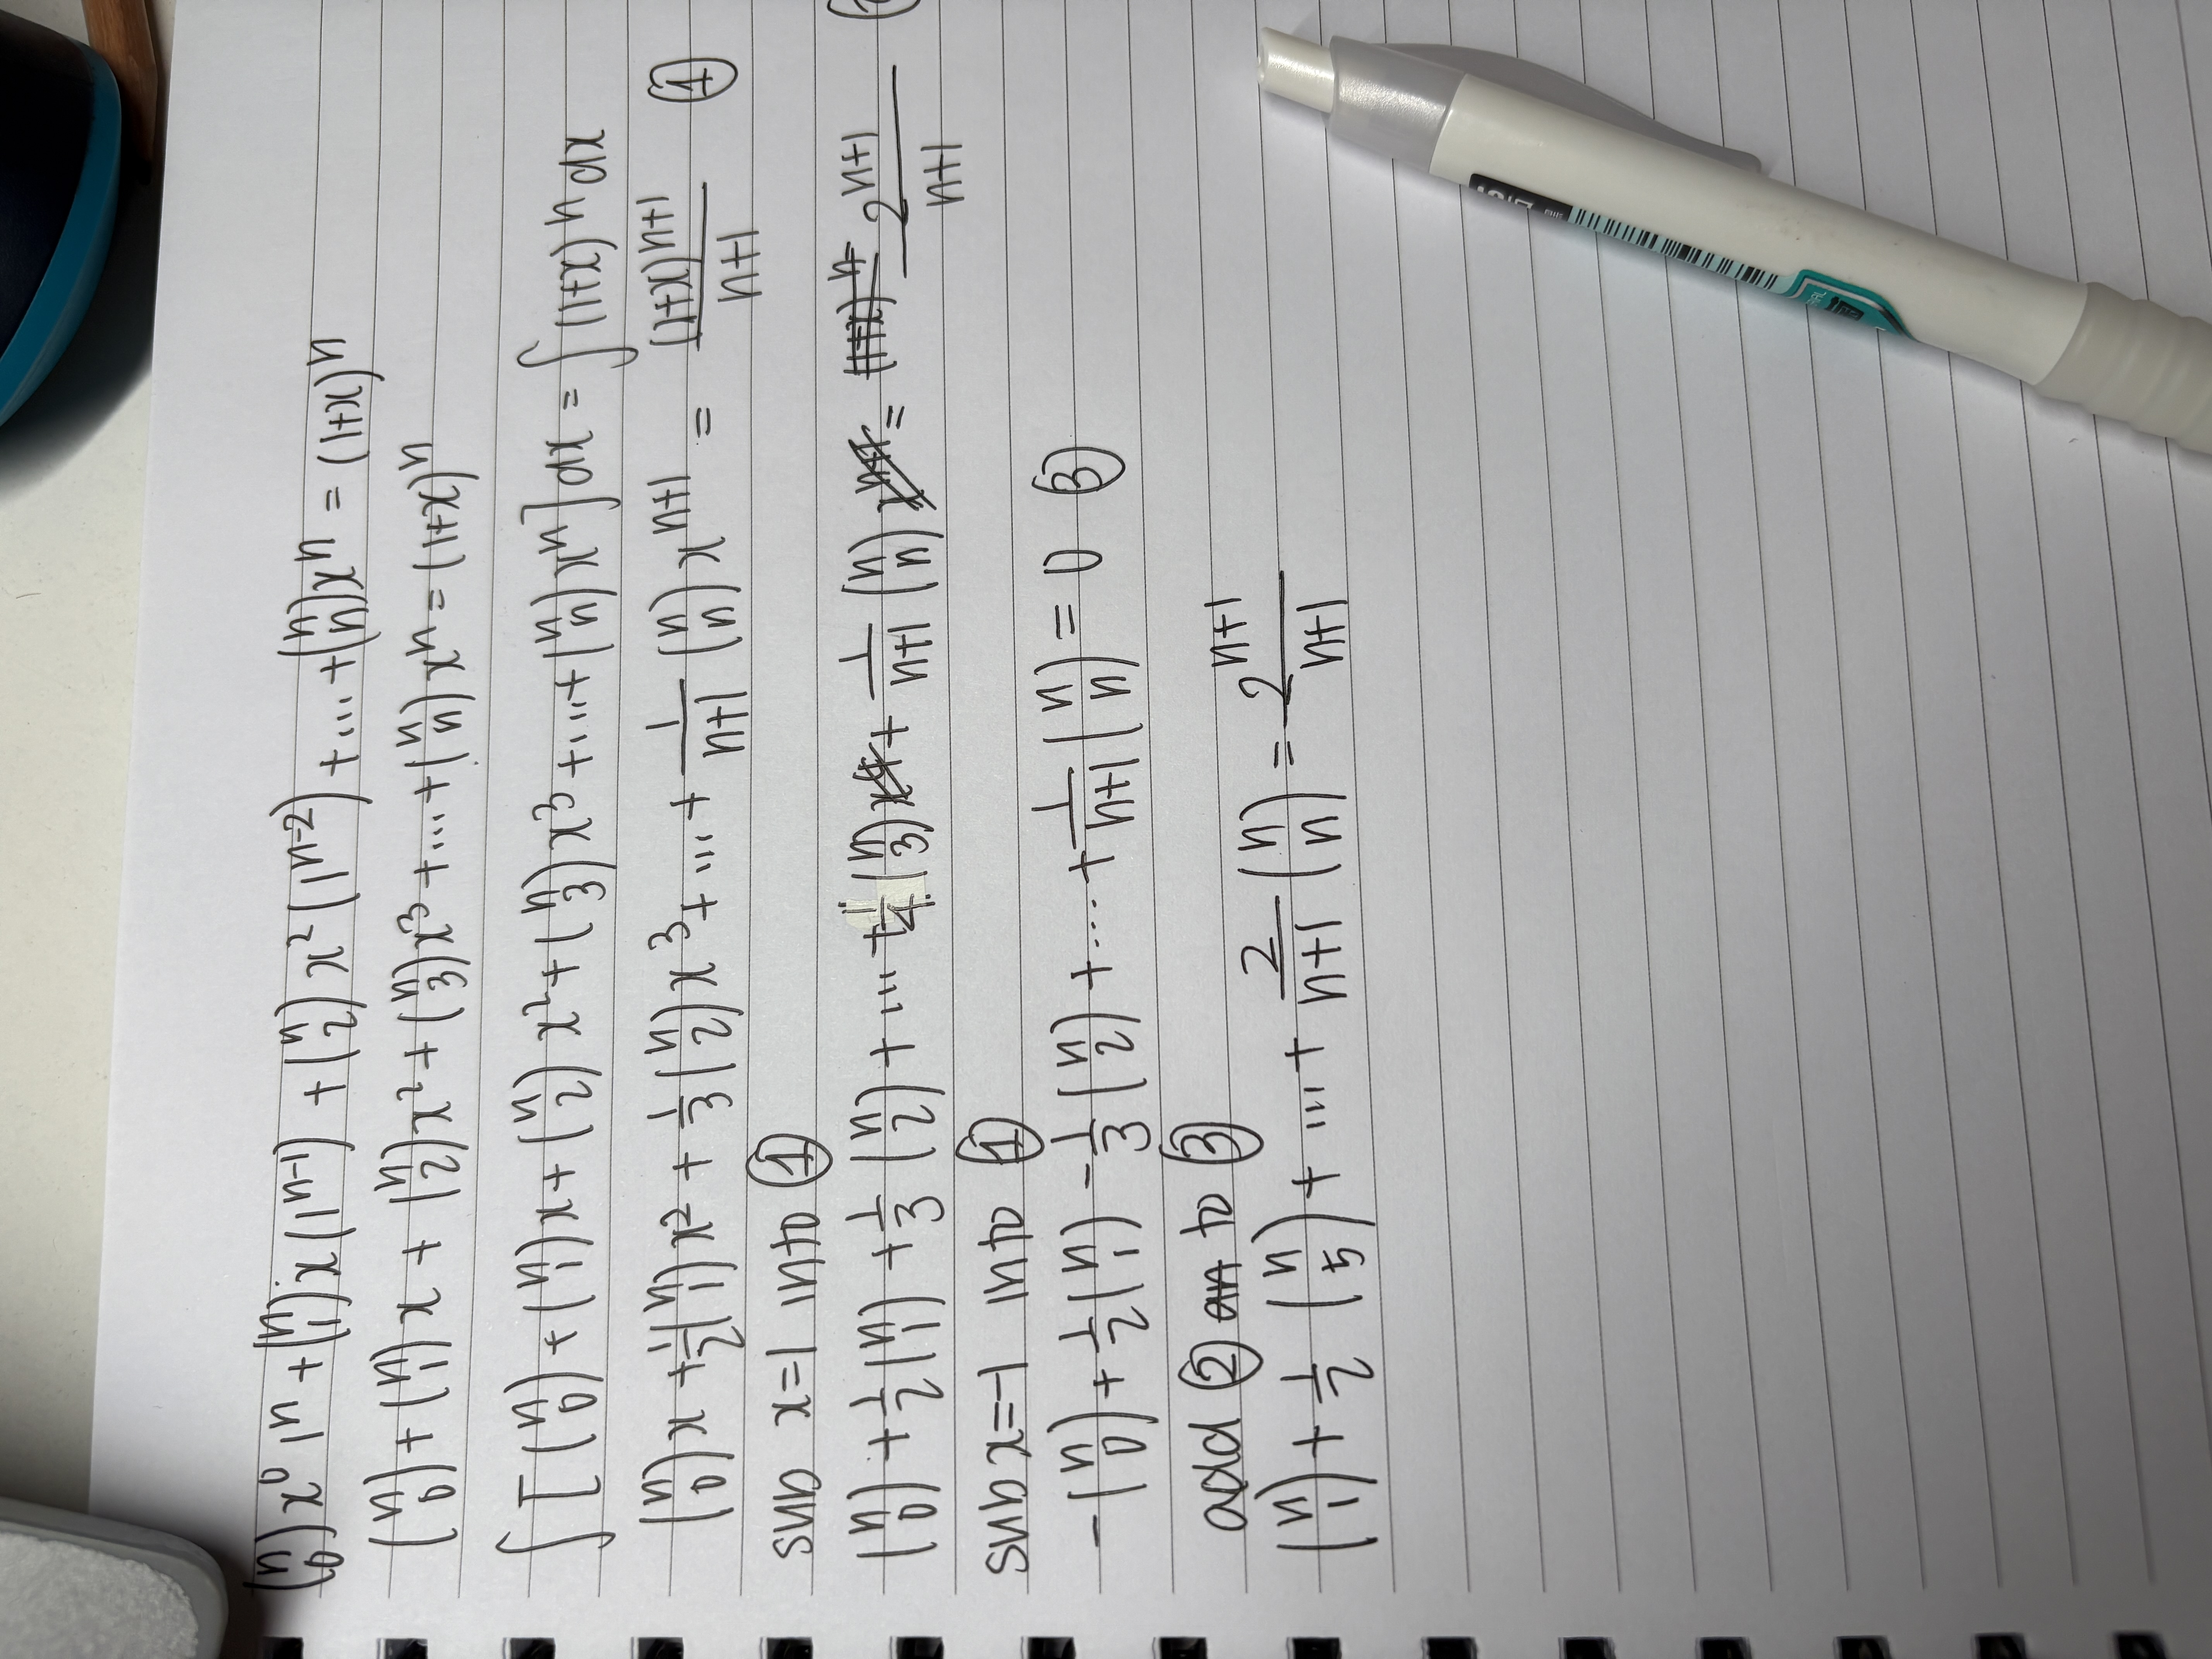 (n 0)x⁰ 1ⁿ + (n 1)x(1ⁿ⁻¹) + (n 2)x²(1ⁿ⁻²) + .... + (n n)xⁿ = (1+x)ⁿ
(n 0) + (n 1)x + (n 2)x² + (n 3)x³ + .... + (n n)xⁿ = (1+x)ⁿ
∫[(n 0) + (n 1)x + (n 2)x² + (n 3)x³ + .... + (n n)xⁿ]dx = ∫(1+x)ⁿdx
(n 0)x + 1/2(n 1)x² + 1/3(n 2)x³ + .... + 1/(n+1) (n n)xⁿ⁺¹ = (1+x)ⁿ⁺¹/(n+1) ①
sub x=1 into ①
(n 0) + 1/2(n 1) + 1/3(n 2) + .... + 1/4(n 3) + 1/(n+1) (n n) = 2ⁿ⁺¹/(n+1)
sub x=-1 into ①
-(n 0) + 1/2(n 1) - 1/3(n 2) + .... + 1/(n+1)(n n) = 0 ③
add ② an to ③
(n 1) + 1/2(n 5) + .... + 2/(n+1) (n n) = 2ⁿ⁺¹/(n+1)